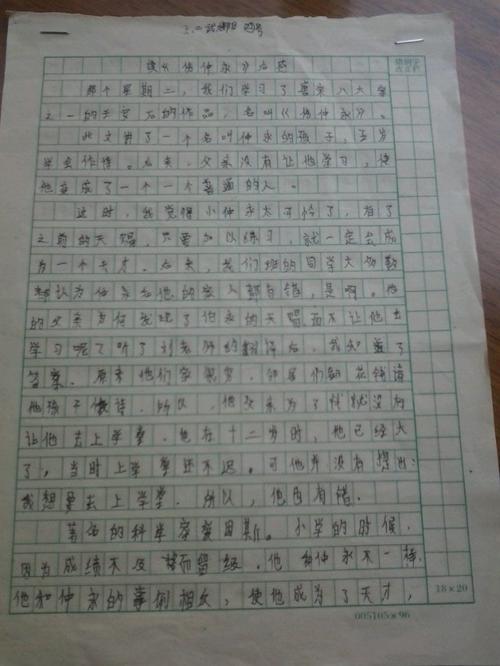 读《伤仲永》后感
那个星期二，我们学习了唐宋八大家
之一的王安石的作品，名叫《伤仲永》。
此文写了一个名叫仲永的孩子，五岁
学会作诗。后来，父亲没有让他学习，使
他变成了一个一个普通的人。
这时，我觉得小仲永太可怜了，有了
之前的天赐，只要加以练习，就一定会成
为一个天才。后来，我们班的同学大多数
都认为仲永和他的家人都有错，是啊。他
的父亲为何发现了他永的天赐而不让他去
学习呢？听了刘老师的翻译后，我知道了
答案。原来他们家很穷，邻居们都花钱请
他孩子做诗，所以，他父亲为了钱就没有
让他去上学堂。他在十二岁时，他已经大
了，当时上学堂还不迟。可他并没有提出：
我想要去上学堂。所以，他也有错。
著名的科学家爱因斯。小学的时候，
因为成绩不及格而留级。他和仲永不一样，
他和仲永的事例相反，使他成为了天才，
18×20